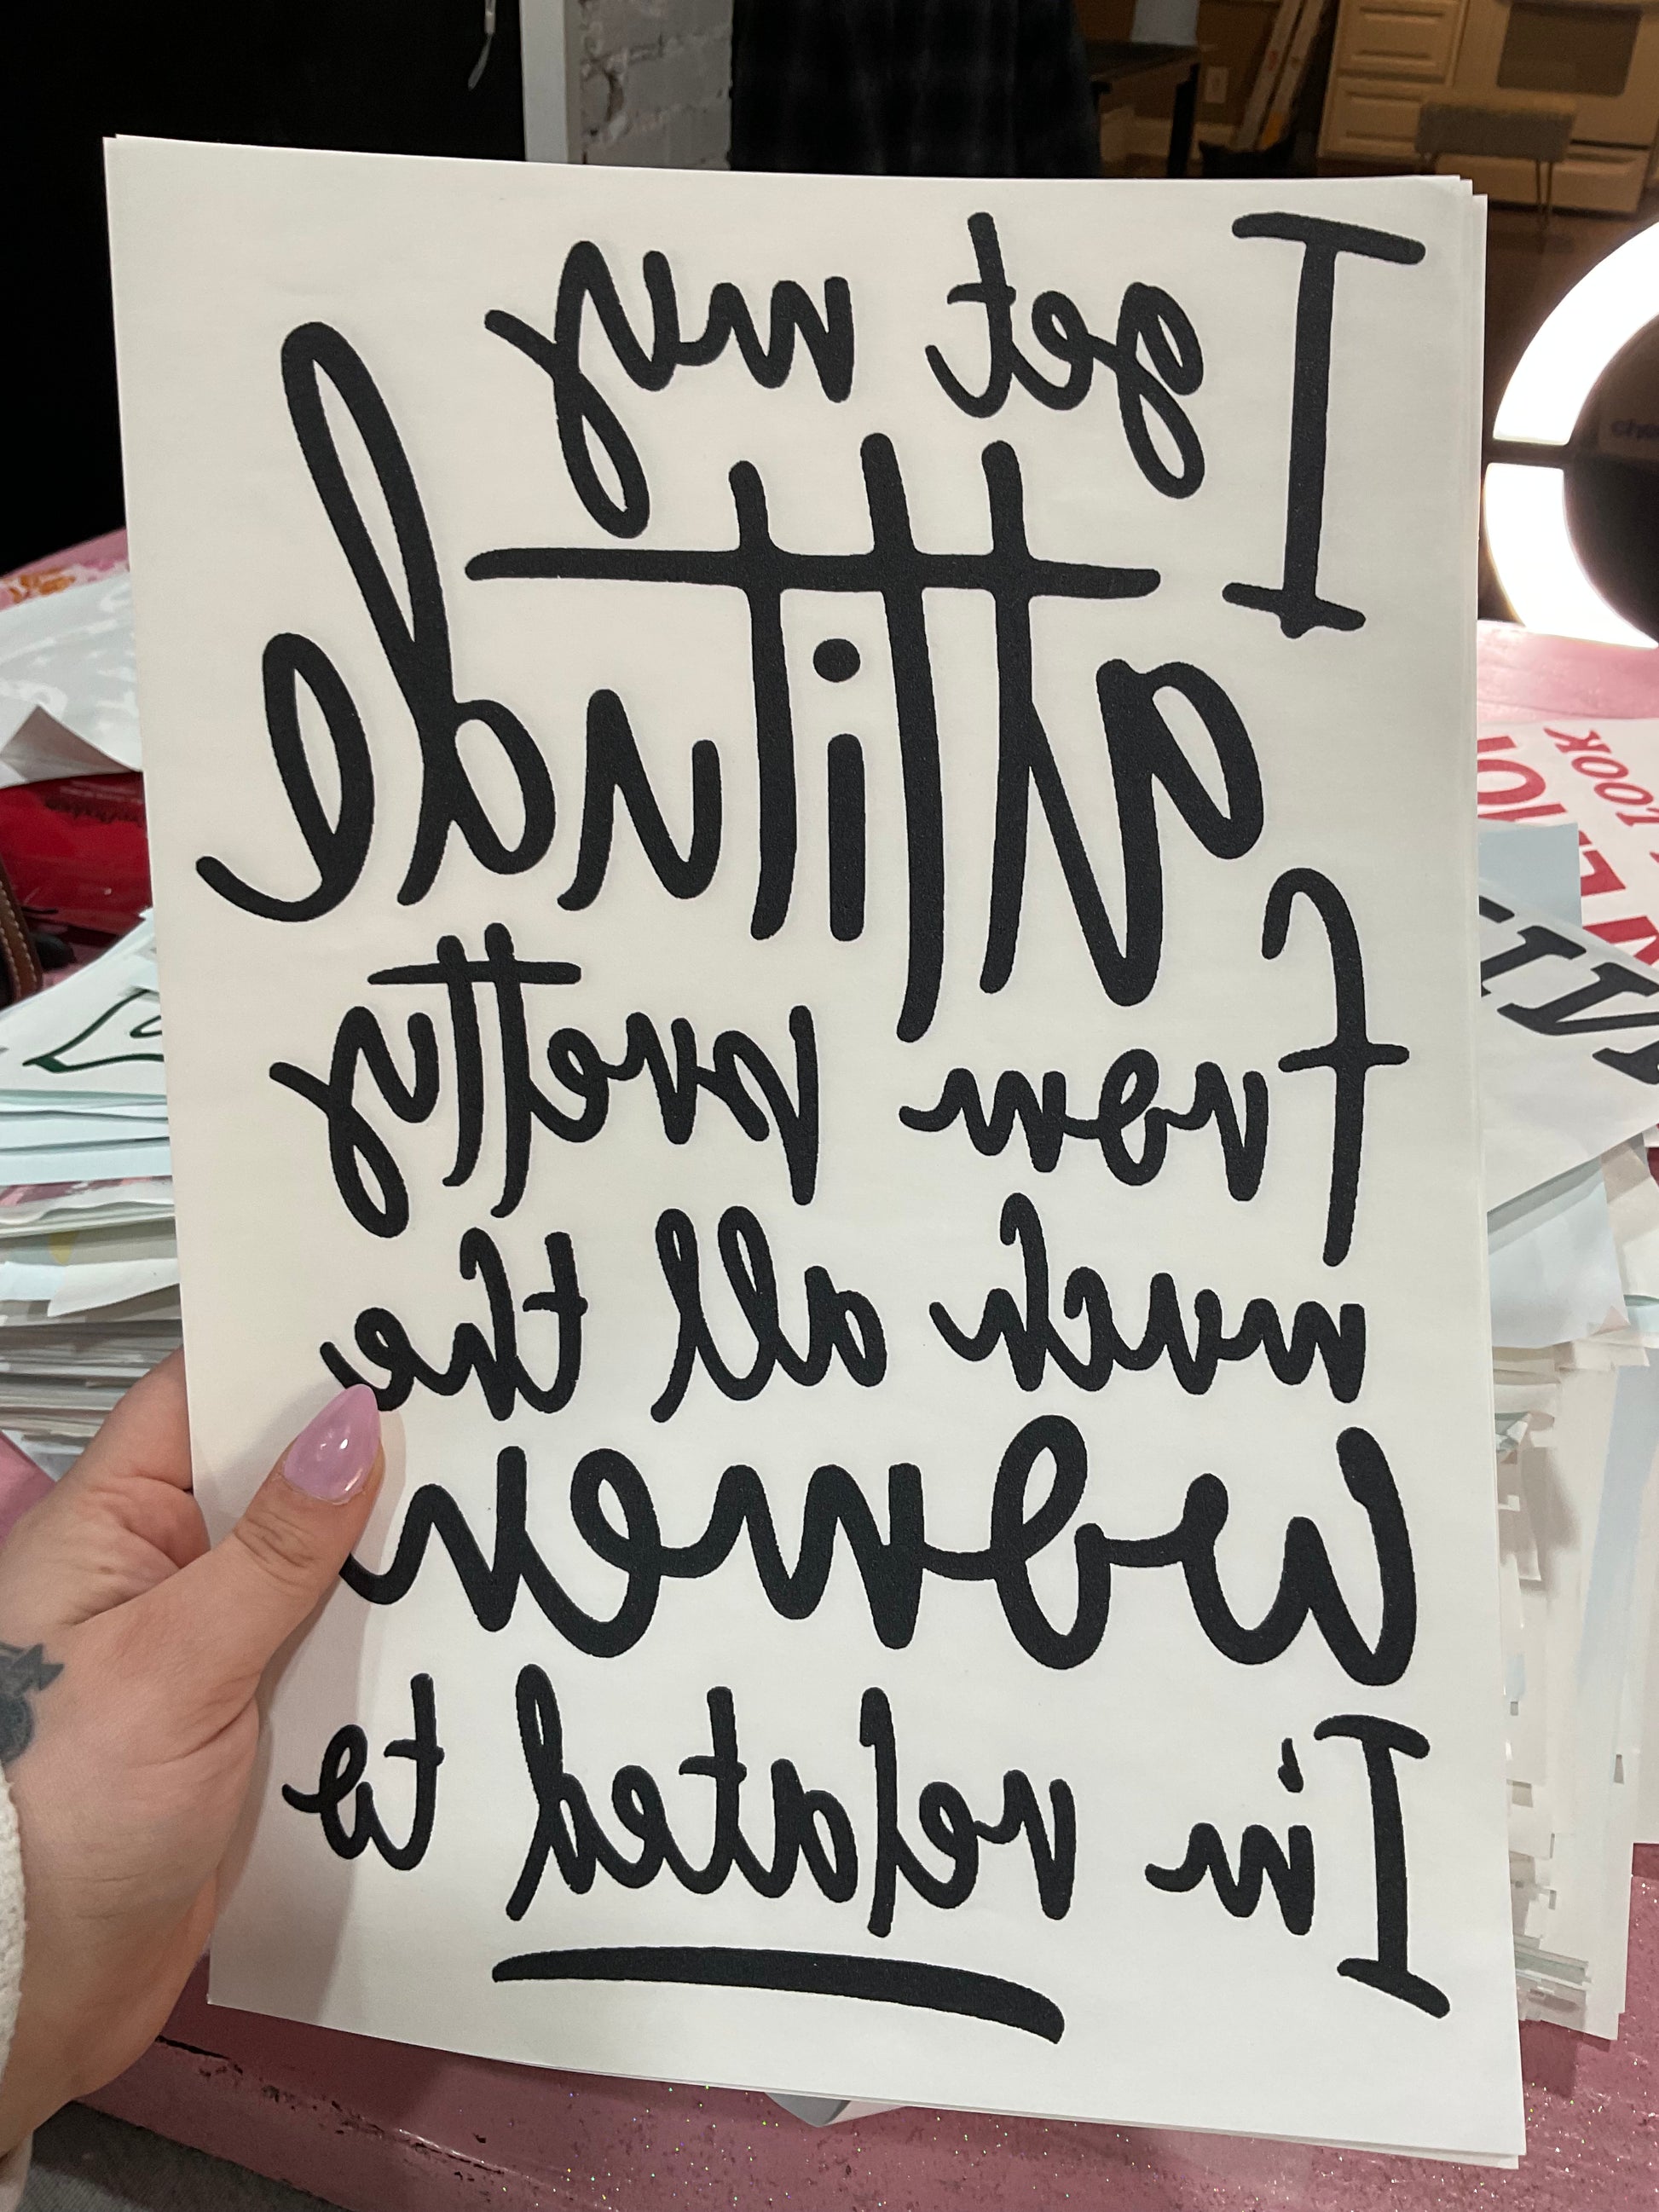 I get my
attitude
from pretty
much all the
women
I'm related to
LOOK